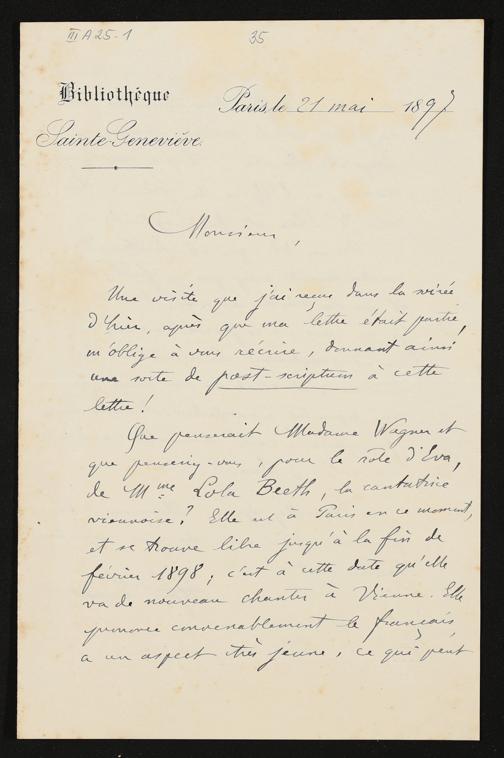 III A 25-1
35
Bibliothèque
Sainte-Geneviève.
Paris, le 21 mai 1897
Monsieur,
Une visite que j'ai reçue dans la soirée
d'hier, après que ma lettre était partie,
m'oblige à vous récrire, donnant ainsi
une sorte de post-scriptum à cette
lettre !
Que penserait Madame Wagner et
que penseriez-vous, pour le rôle d'Eva,
de Mme Lola Beeth, la cantatrice
viennoise ? Elle est à Paris en ce moment,
et se trouve libre jusqu'à la fin de
février 1898 ; c'est à cette date qu'elle
va de nouveau chanter à Vienne. Elle
prononce convenablement le français
a un aspect très jeune, ce qui peut